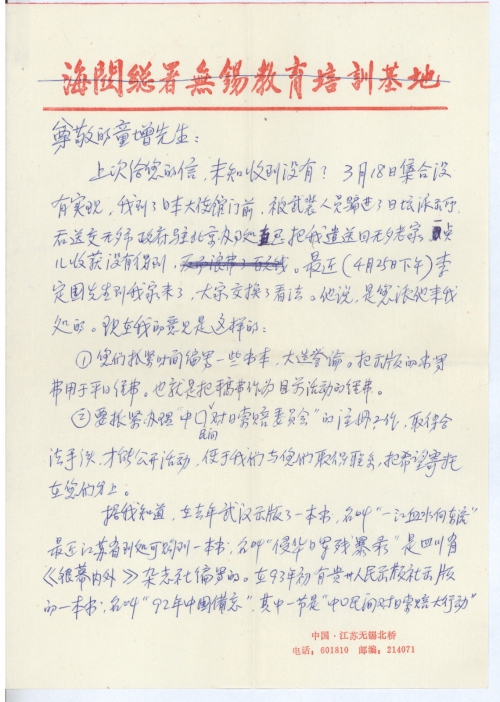 海關総署無锡教育培訓基地
尊敬的童增先生：
上次给您的信，未知收到没有？3月18日集合没
有实现，我到了日本大使馆门前，被武装人员骗进了日坛派出所，
后送交无锡市政府驻北京办事处 把我遣送回无锡老家，
儿收获没有得到。最近（4月25日下午）李
定国先生到我家来了，大家交换了看法。他说，是您派他来我
处的。现在我的意见是这样的：
①您们抓紧时间编写一些书本，大造舆论。把出版的书界
费用于平日经费。也就是把稿费作为目前活动的经费。
②要抓紧办理“中囗民间对日索赔委员会”的注册工作，取得合
法手续，才能公开活动，便于我们与您们取得联系，把希望寄托
在您们身上。
据我知道，在去年武汉出版了一本书，名叫“一江血水向东流”
最近江苏省到处可购到一本书，名叫“侵华日军残暴录”是四川省
《银幕内外》杂志社编写的。在93年初有贵州人民出版社出版
的一本书，名叫“92年中国备忘”，其中一节是“中囗民间对日索赔大行动”
中国·江苏无锡北桥
电话：601810 邮编：214071